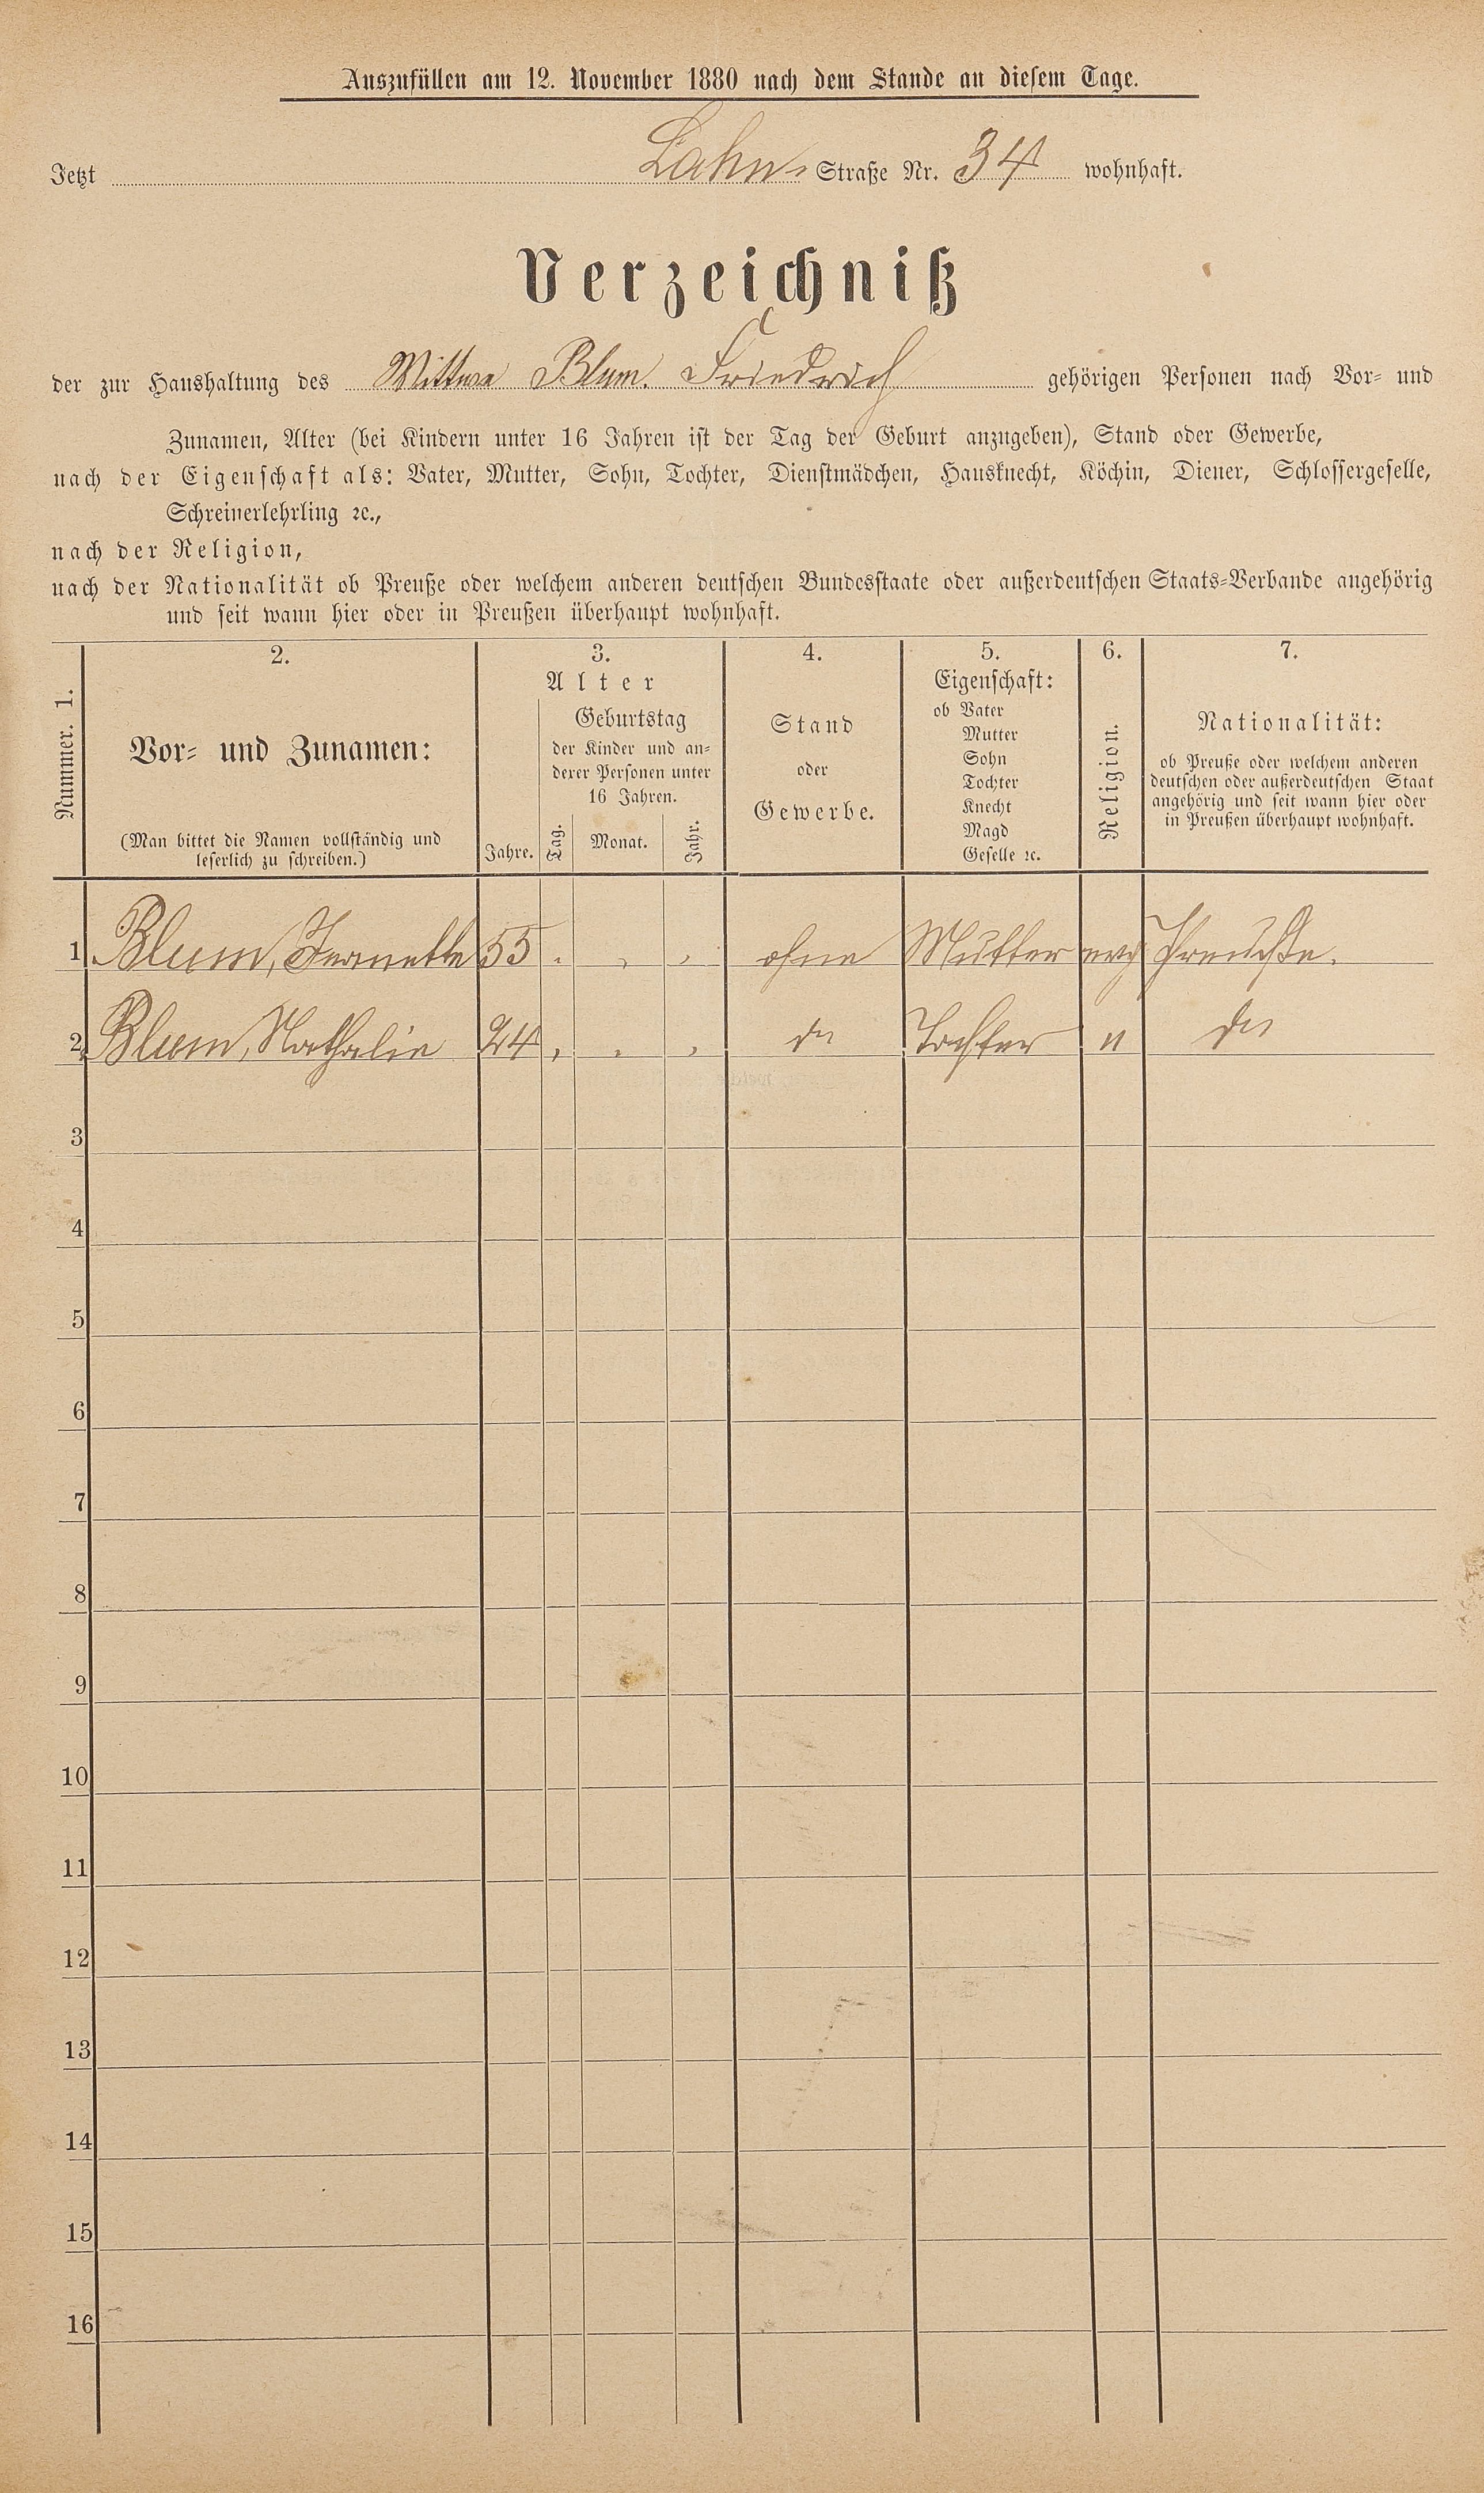 Auszufüllen am 12. November 1880 nach dem Stande an diesem Tage.
Jetzt Lahn- Straße Nr. 34 wohnhaft.
Verzeichniß
der zur Haushaltung des Wittwe Blum. Friedrich gehörigen Personen nach Vor- und
Zunamen, Alter (bei Kindern unter 16 Jahren ist der Tag der Geburt anzugeben), Stand oder Gewerbe,
nach der Eigenschaft als: Vater, Mutter, Sohn, Tochter, Dienstmädchen, Hausknecht, Köchin, Diener, Schlossergeselle,
Schreinerlehrling ꝛc.,
nach der Religion,
nach der Nationalität ob Preuße oder welchem anderen deutschen Bundesstaate oder außerdeutschen Staats-Verbande angehörig
und seit wann hier oder in Preußen überhaupt wohnhaft.
Nummer. 1.
2.
Vor- und Zunamen:
(Man bittet die Namen vollständig und
leserlich zu schreiben.)
3.
Alter
Jahre.
Geburtstag
der Kinder und an-
derer Personen unter
16 Jahren.
Tag. Monat. Jahr.
4.
Stand
oder
Gewerbe.
5.
Eigenschaft:
ob Vater
Mutter
Sohn
Tochter
Knecht
Magd
Geselle ꝛc.
6.
Religion.
7.
Nationalität:
ob Preuße oder welchem anderen
deutschen oder außerdeutschen Staat
angehörig und seit wann hier oder
in Preußen überhaupt wohnhaft.
1 Blum, Jeanette 55 ohne Mutter evg Preuße.
2 Blum, Nathalie 24 do Tochter " do
3
4
5
6
7
8
9
10
11
12
13
14
15
16